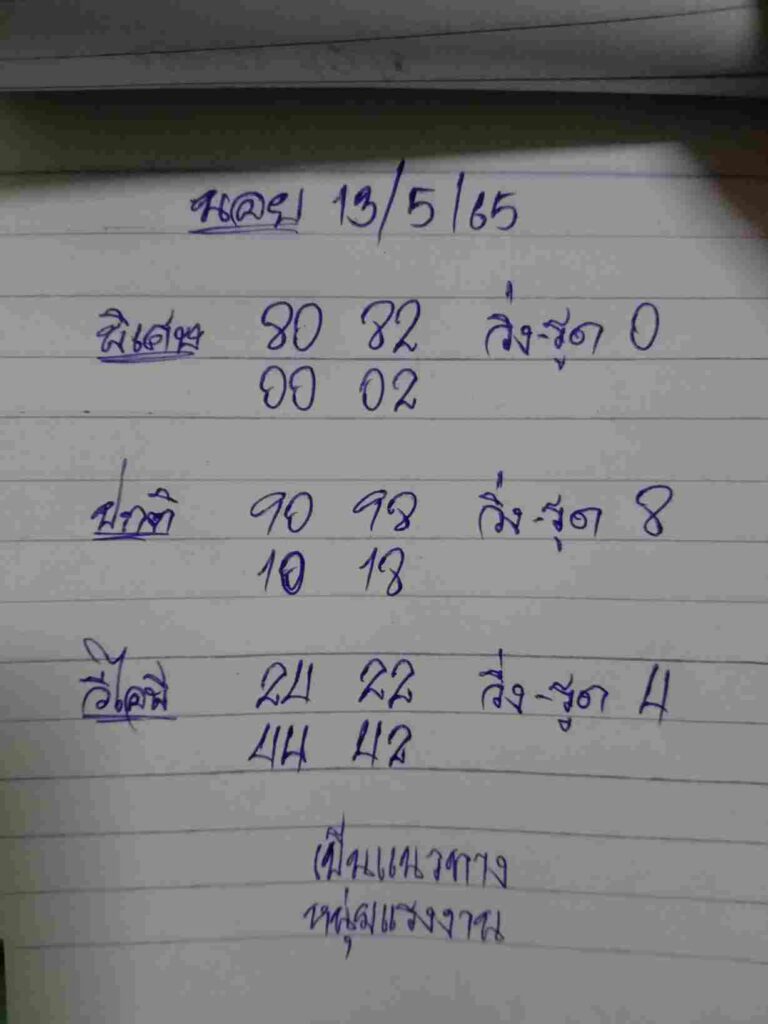 นอย 13/5/65
พิเศษ 80 82 วิ่ง-รูด 0
00 02
ปกติ 90 98 วิ่ง-รูด 8
10 18
วีไอพี 24 22 วิ่ง-รูด 4
44 42
เป็นแนวทาง
หนุ่มแรงงาน